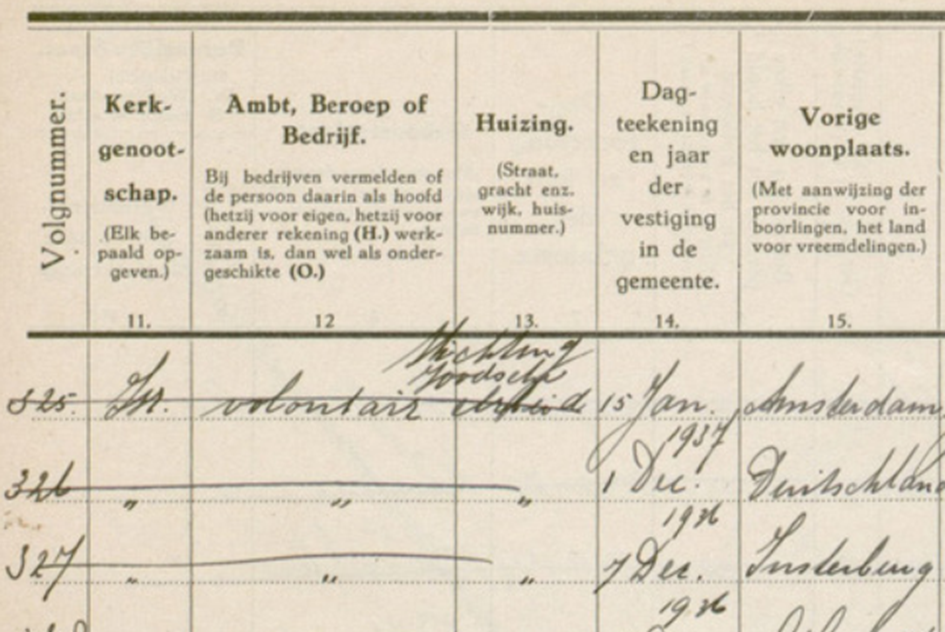 Volgnummer.
Kerk-
genoot-
schap.
(Elk be-
paald op-
geven.)
11.
Ambt, Beroep of
Bedrijf.
Bij bedrijven vermelden of
de persoon daarin als hoofd
(hetzij voor eigen, hetzij voor
anderer rekening (H.) werk-
zaam is, dan wel als onder-
geschikte (O.)
12
Huizing.
(Straat,
gracht enz.
wijk, huis-
nummer.)
13.
Dag-
teekening
en jaar
der
vestiging
in de
gemeente.
14.
Vorige
woonplaats.
(Met aanwijzing der
provincie voor in-
boorlingen, het land
voor vreemdelingen.)
15.
Stichting
Joodsche
325. Isr. volontair arbeid 15 Jan. Amsterdam
1937
326 „ „ „ 1 Dec. Deutschland
1936
327 „ „ „ 7 Dec. Insterburg
1936